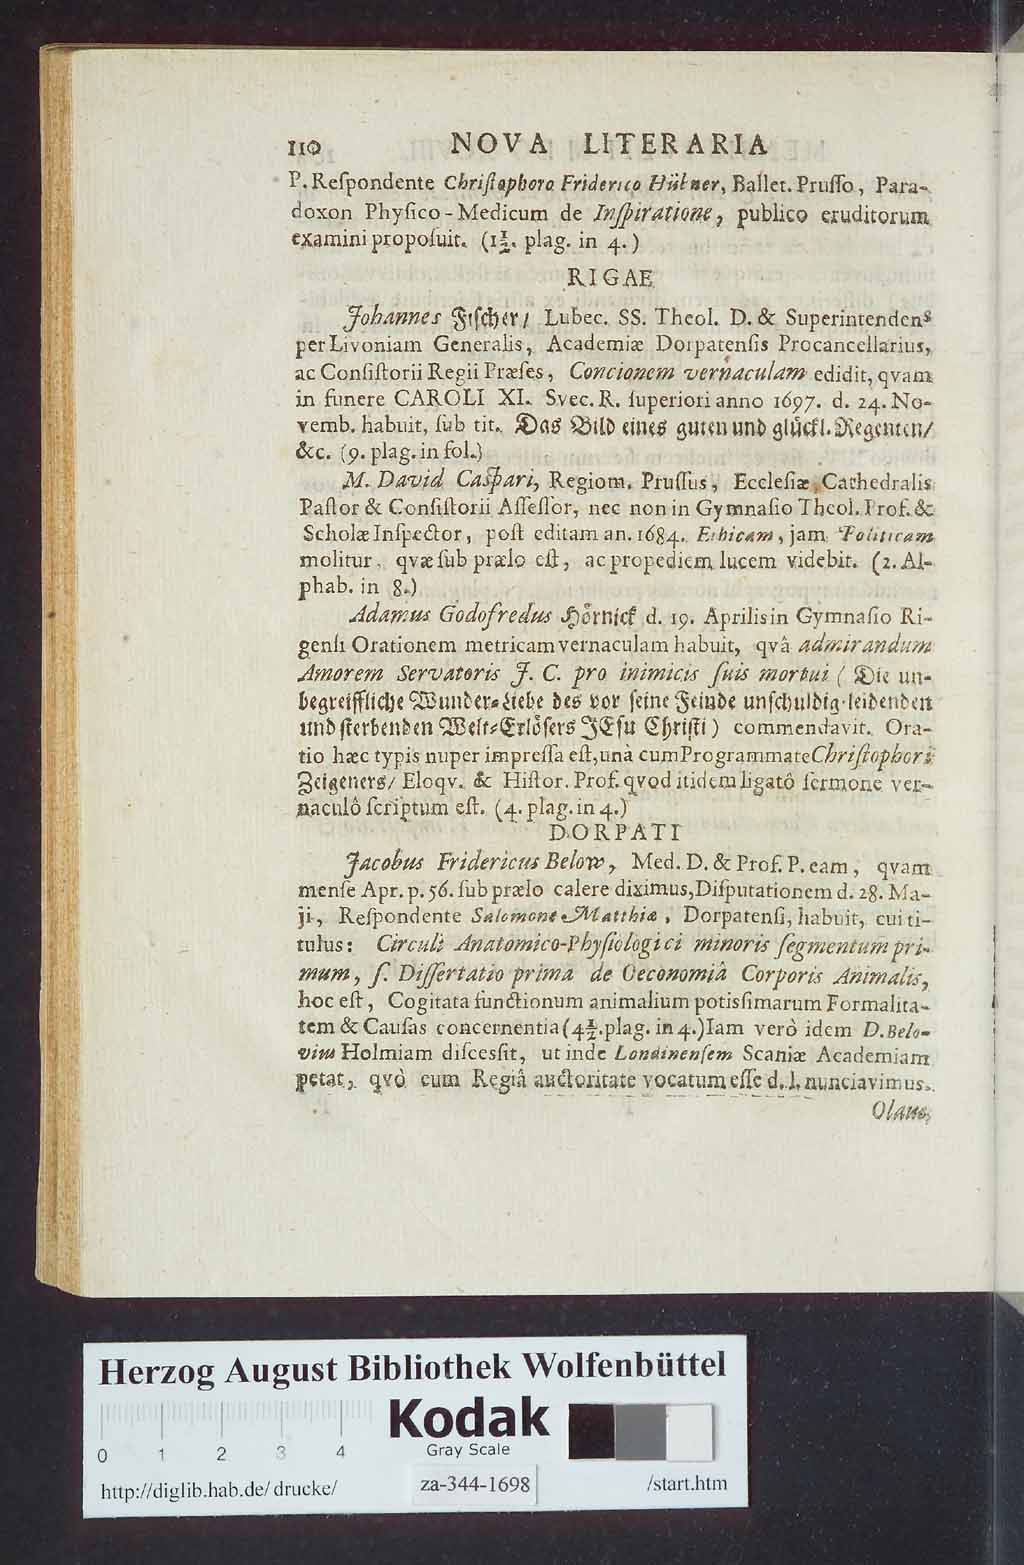 110 NOVA LITERARIA
P. Reſpondente Chriſtophoro Friderico Hübner, Ballet. Pruſſo, Para-
doxon Phyſico-Medicum de Inſpiratione, publico eruditorum
examini propoſuit. (1½. plag. in 4.)
RIGAE
Johannes Fiſcher/ Lubec. SS. Theol. D. & Superintendens
per Livoniam Generalis, Academiæ Dorpatenſis Procancellarius,
ac Conſiſtorii Regii Præſes, Concionem vernaculam edidit, qvam
in funere CAROLI XI. Svec. R. ſuperiori anno 1697. d. 24. No-
vemb. habuit, ſub tit. Das Bild eines guten und glückl. Regenten/
&c. (9. plag. in fol.)
M. David Caſpari, Regiom. Pruſſus, Eccleſiæ Cathedralis
Paſtor & Conſiſtorii Aſſeſſor, nec non in Gymnaſio Theol. Prof. &
Scholæ Inſpector, poſt editam an. 1684. Ethicam, jam Politicam
molitur, qvæ ſub prælo eſt, ac propediem lucem videbit. (2. Al-
phab. in 8.)
Adamus Godofredus Hörnick d. 19. Aprilis in Gymnaſio Ri-
genſi Orationem metricam vernaculam habuit, qvâ admirandum
Amorem Servatoris J. C. pro inimicis ſuis mortui (Die un-
begreiffliche Wunder-Liebe des vor ſeine Feinde unſchuldig-leidenden
und ſterbenden Welt-Erlöſers JEſu Chriſti) commendavit. Ora-
tio hæc typis nuper impreſſa eſt, unà cum Programmate Chriſtophori
Zeigeners/ Eloqv. & Hiſtor. Prof. qvod itidem ligatô ſermone ver-
naculô ſcriptum eſt. (4. plag. in 4.)
DORPATI
Jacobus Fridericus Below, Med. D. & Prof. P. eam, qvam
menſe Apr. p. 56. ſub prælo calere diximus, Diſputationem d. 28. Ma-
ji, Reſpondente Salomone Matthiæ, Dorpatenſi, habuit, cui ti-
tulus: Circuli Anatomico-Phyſiologici minoris ſegmentum pri-
mum, ſ. Diſſertatio prima de Oeconomiâ Corporis Animalis,
hoc eſt, Cogitata functionum animalium potisſimarum Formalita-
tem & Cauſas concernentia (4½. plag. in 4.) Iam verò idem D. Belo-
vius Holmiam diſcesſit, ut inde Londinenſem Scaniæ Academiam
petat, qvò eum Regiâ auctoritate vocatum eſſe d. l. nunciavimus.
Olaus
Herzog August Bibliothek Wolfenbüttel
Kodak
Gray Scale
0 1 2 3 4
http://diglib.hab.de/drucke/ za-344-1698 /start.htm